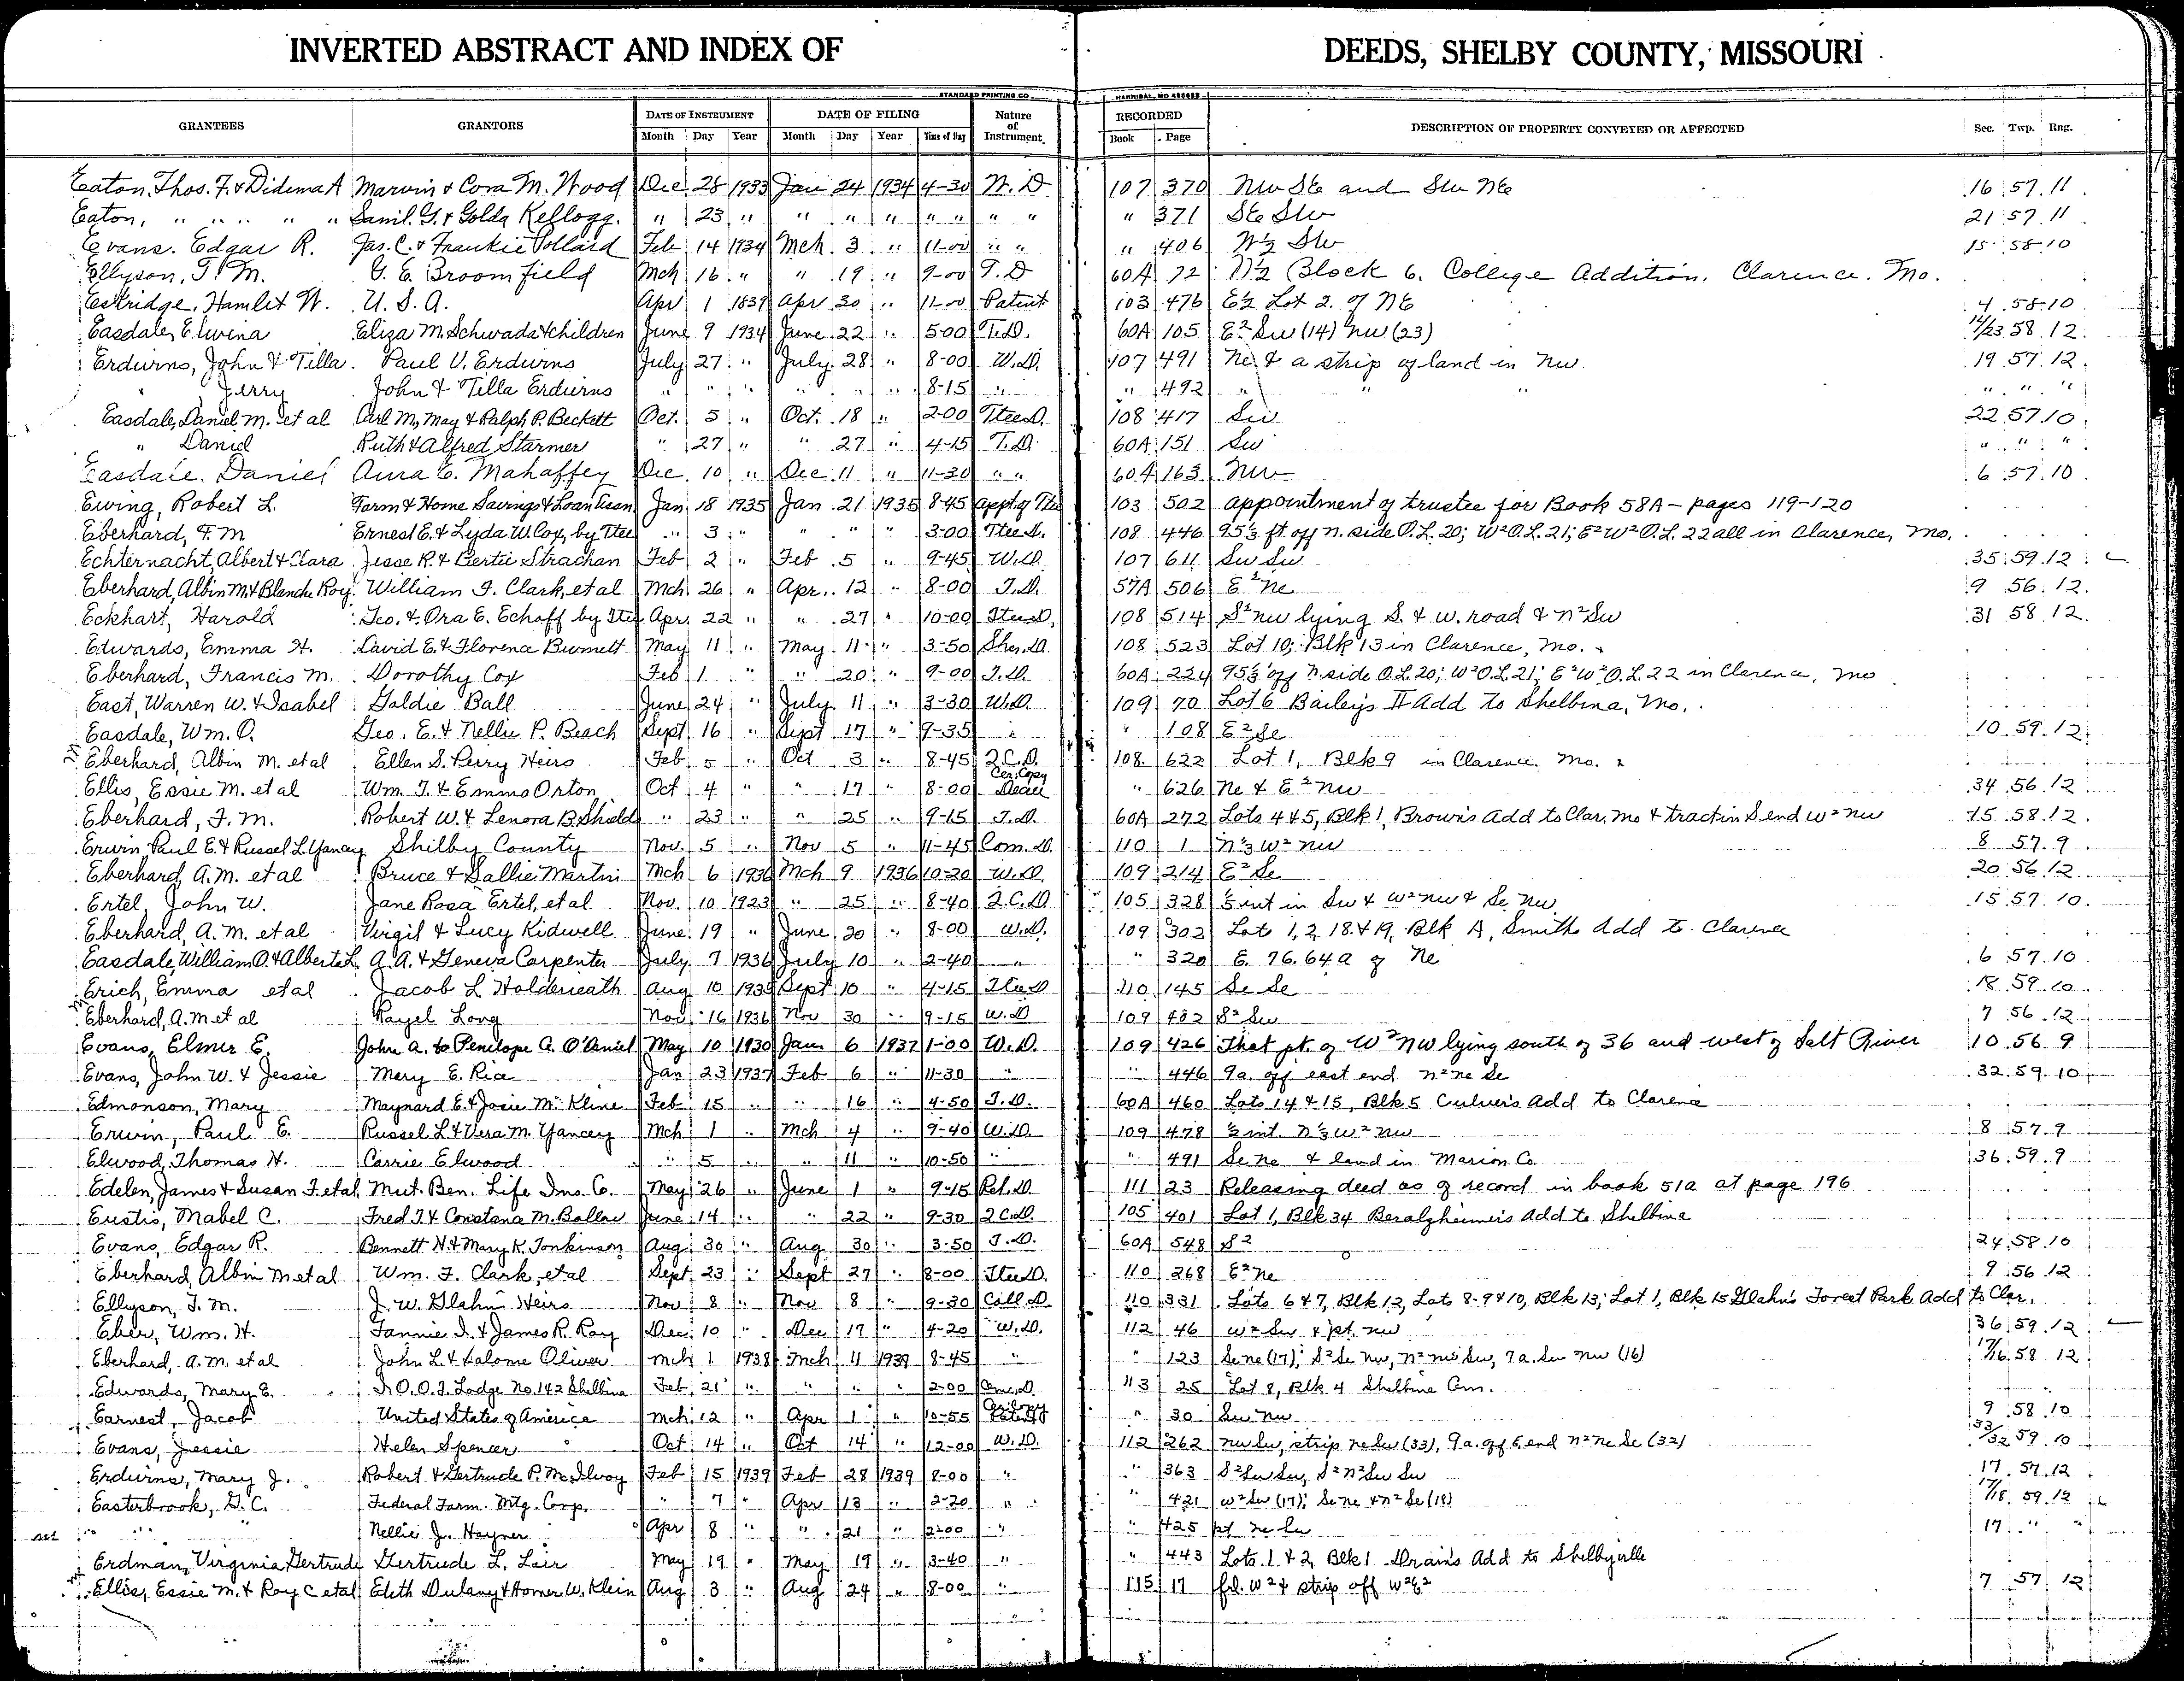 INVERTED ABSTRACT AND INDEX OF DEEDS, SHELBY COUNTY, MISSOURI
STANDARD PRINTING CO. HANNIBAL, MO
GRANTEES GRANTORS DATE OF INSTRUMENT DATE OF FILING Nature of Instrument RECORDED DESCRIPTION OF PROPERTY CONVEYED OR AFFECTED Sec. Twp. Rng.
Month Day Year Month Day Year Time of Day Book Page
Eaton, Thos. F. & Didema A Marvin & Cora M. Wood Dec 28 1933 Jan 24 1934 4-30 W. D 107 370 NW SE and SW NE 16 57 11
Eaton, " " " " " Saml. G. & Golda Kellogg. " 23 " " " " " " " " " 371 SE SW 21 57 11
Evans. Edgar R. Jas. C. & Frankie Pollard Feb 14 1934 Mch 3 " 11-00 " " " 406 W½ SW 15 58 10
Ellyson, T. M. G. E. Broomfield Mch 16 " " 19 " 9-00 T. D 60A 72 N½ Block 6. College Addition, Clarence. Mo.
Eskridge, Hamlet W. U. S. A. Apr 1 1839 Apr 30 " 11-00 Patent 103 476 E½ Lot 2. of NE 4 58 10
Easdale, Elwina Eliza M. Schwada & children June 9 1934 June 22 " 5-00 T.D. 60A 105 E² Sw (14) nw (23) 14/23 58 12
Erdurns, John & Tilla. Paul V. Erdurns July 27 " July 28 " 8-00 W.D. 107 491 Ne & a strip of land in nw 19 57 12
" Jerry John & Tilla Erdurns " " " " " " 8-15 " " 492 " " " " " "
Easdale, Daniel M. et al Carl M, May & Ralph P. Beckett Oct. 5 " Oct. 18 " 2-00 Ttee D. 108 417 Sw 22 57 10
" Daniel Ruth & Alfred Starmer " 27 " " 27 " 4-15 T.D. 60A 151 Sw " " "
Easdale. Daniel Aura E. Mahaffey Dec. 10 " Dec 11 " 11-30 " " 60A 163 NW 6 57 10
Ewing, Robert L. Farm & Home Savings & Loan Assn Jan 18 1935 Jan 21 1935 8-45 appt. of Ttee 103 502 appointment of trustee for Book 58A - pages 119-120
Eberhard, F. M Ernest E. & Lyda W. Cox, by Ttee " 3 " " " " 3-00 Ttee D. 108 446 95½ ft. off n. side O.L. 20; W² O.L. 21; E² W² O.L. 22 all in Clarence, Mo.
Echternacht, Albert & Clara Jesse R. & Bertie Strachan Feb 2 " Feb 5 " 9-45 W.D. 107 611 Sw Sw 35 59 12
Eberhard, Albin M. & Blanche Roy William F. Clark, et al Mch 26 " Apr. 12 " 8-00 T.D. 57A 506 E² ne 9 56 12
Eckhart, Harold Geo. & Ora E. Echoff by Ttee Apr. 22 " " 27 " 10-00 Ttee D. 108 514 S² nw lying S. & W. road & n² Sw 31 58 12
Edwards, Emma H. David E. & Florence Burnett May 11 " May 11 " 3-50 Sher. D. 108 523 Lot 10, Blk 13 in Clarence, Mo.
Eberhard, Francis M. Dorothy Cox Feb 1 " " 20 " 9-00 T.D. 60A 224 95½' off n. side O.L. 20; W² O.L. 21; E² W² O.L. 22 in Clarence, Mo
East, Warren W. & Isabel Goldie Ball June 24 " July 11 " 3-30 W.D. 109 70 Lot 6 Bailey's II Add to Shelbina, Mo.
Easdale, Wm. O. Geo. E. & Nellie P. Beach Sept 16 " Sept 17 " 9-35 " " 108 E² Se 10 59 12
Eberhard, Albin M. et al Ellen S. Perry Heirs Feb 5 " Oct 3 " 8-45 Q.C.D. 108 622 Lot 1, Blk 9 in Clarence. Mo.
Ellis, Essie M. et al Wm. T. & Emma Orton Oct 4 " " 17 " 8-00 Cer. Copy " 626 Ne & E² nw 34 56 12
Eberhard, F. M. Robert W. & Lenora B. Shields " 23 " " 25 " 9-15 T.D. 60A 272 Lots 4 & 5, Blk 1, Brown's Add to Clar, Mo & tract in S end W² nw 15 58 12
Erwin Paul E. & Russel L. Yancey Shelby County Nov. 5 " Nov 5 " 11-45 Com. D. 110 1 n⅓ W² nw 8 57 9
Eberhard, A. M. et al Bruce & Sallie Martin Mch 6 1936 Mch 9 1936 10-20 W.D. 109 214 E² Se 20 56 12
Ertel, John W. Jane Rosa Ertel, et al Nov. 10 1923 " 25 " 8-40 Q.C.D. 105 328 int in Sw & W² nw & Se nw 15 57 10
Eberhard, A. M. et al Virgil & Lucy Kidwell June 19 " June 20 " 8-00 W.D. 109 302 Lots 1, 2 18 & 19, Blk A, Smiths Add to Clarence
Easdale, William O. & Alberta L A. A. & Geneva Carpenter July 7 1936 July 10 " 2-40 " " 320 E. 76.64 a of Ne 6 57 10
Erich, Emma et al Jacob L Holderieath Aug 10 1935 Sept 10 " 4-15 Ttee D 110 145 Se Se 18 59 10
Eberhard, A. M et al Rayel Long Nov 16 1936 Nov 30 " 9-15 W.D 109 482 S² Sw 7 56 12
Evans, Elmer E. John A. & Penelope A. O'Daniel May 10 1930 Jan 6 1937 1-00 W.D. 109 426 That pt. of W² NW lying south of 36 and west of Salt River 10 56 9
Evans, John W. & Jessie Mary E. Rice Jan 23 1937 Feb 6 " 11-30 " " 446 9 a. off east end n² ne Se 32 59 10
Edmonson, Mary Maynard E. & Josie M. Kline Feb 15 " " 16 " 4-50 T.D. 60A 460 Lots 14 & 15, Blk 5 Culver's Add to Clarence
Erwin, Paul E. Russel L & Vera M. Yancey Mch 1 " Mch 4 " 9-40 W.D. 109 478 ½ int. n⅓ W² nw 8 57 9
Elwood, Thomas H. Carrie Elwood " 5 " " 11 " 10-50 " " 491 Se ne & land in Marion Co. 36 59 9
Edelen, James & Susan F. et al Mut. Ben. Life Ins. Co. May 26 " June 1 " 9-15 Rel. D. 111 23 Releasing deed as of record in book 51a at page 196
Eustis, Mabel C. Fred T. & Constana M. Ballow June 14 " " 22 " 9-30 Q.C.D. 105 401 Lot 1, Blk 34 Add to Shelbina
Evans, Edgar R. Bennett H. & Mary K. Tonkinson Aug 30 " Aug 30 " 3-50 T.D. 60A 548 S² 24 58 10
Eberhard, Albin M et al Wm. F. Clark, et al Sept 23 " Sept 27 " 8-00 Ttee D. 110 268 E² ne 9 56 12
Ellyson, T. M. J. W. Glahn Heirs Nov 8 " Nov 8 " 9-30 Coll. D. 110 331 Lots 6 & 7, Blk 12, Lots 8-9 & 10, Blk 13; Lot 1, Blk 15 Glahn's Forest Park Add to Clar.
Eber, Wm. H. Fannie I. & James R. Ray Dec 10 " Dec 17 " 4-20 W.D. 112 46 W² Sw & pt. nw 36 59 12
Eberhard, A. M. et al John L. & Salome Oliver Mch 1 1938 Mch 11 8-45 " " 123 Se ne (17); S² Se nw, Sw, 7 a. Sw nw (16) 17/16 58 12
Edwards, Mary E. I.O.O.F. Lodge No. 142 Shelbina Feb 21 " " " " 2-00 Cem. D. 113 25 Lot 8, Blk 4 Shelbina Cem.
Earnest, Jacob United States of America Mch 12 " Apr 1 " 10-55 Cer. Copy Patent " 30 Sw nw 9 58 10
Evans, Jessie Helen Spencer Oct 14 " Oct 14 " 12-00 W.D. 112 262 nw Sw, strip ne Sw (33), 9 a. off E end n² ne Se (32) 33/32 59 10
Erdwins, Mary J. Robert & Gertrude P. McIlvoy Feb 15 1939 Feb 28 1939 8-00 " " 363 S² Sw Sw, S² n² Sw Sw 17 57 12
Easterbrook, G. C. Federal Farm. Mtg. Corp. " 7 " Apr 13 " 2-20 " " 421 W² Sw (17); Se ne & n² Se (18) 17/18 59 12
" " Nellie J. Hayner Apr 8 " " 21 " 2-00 " " 425 pt ne Sw 17 " "
Erdman, Virginia Gertrude Gertrude L. Lair May 19 " May 19 " 3-40 " " 443 Lots 1 & 2, Blk 1 Drain's Add to Shelbyville
Ellis, Essie M. & Roy C et al Edith Dulany & Homer W. Klein Aug 3 " Aug 24 " 8-00 " 115 17 frl. W² & strip off W² E² 7 57 12